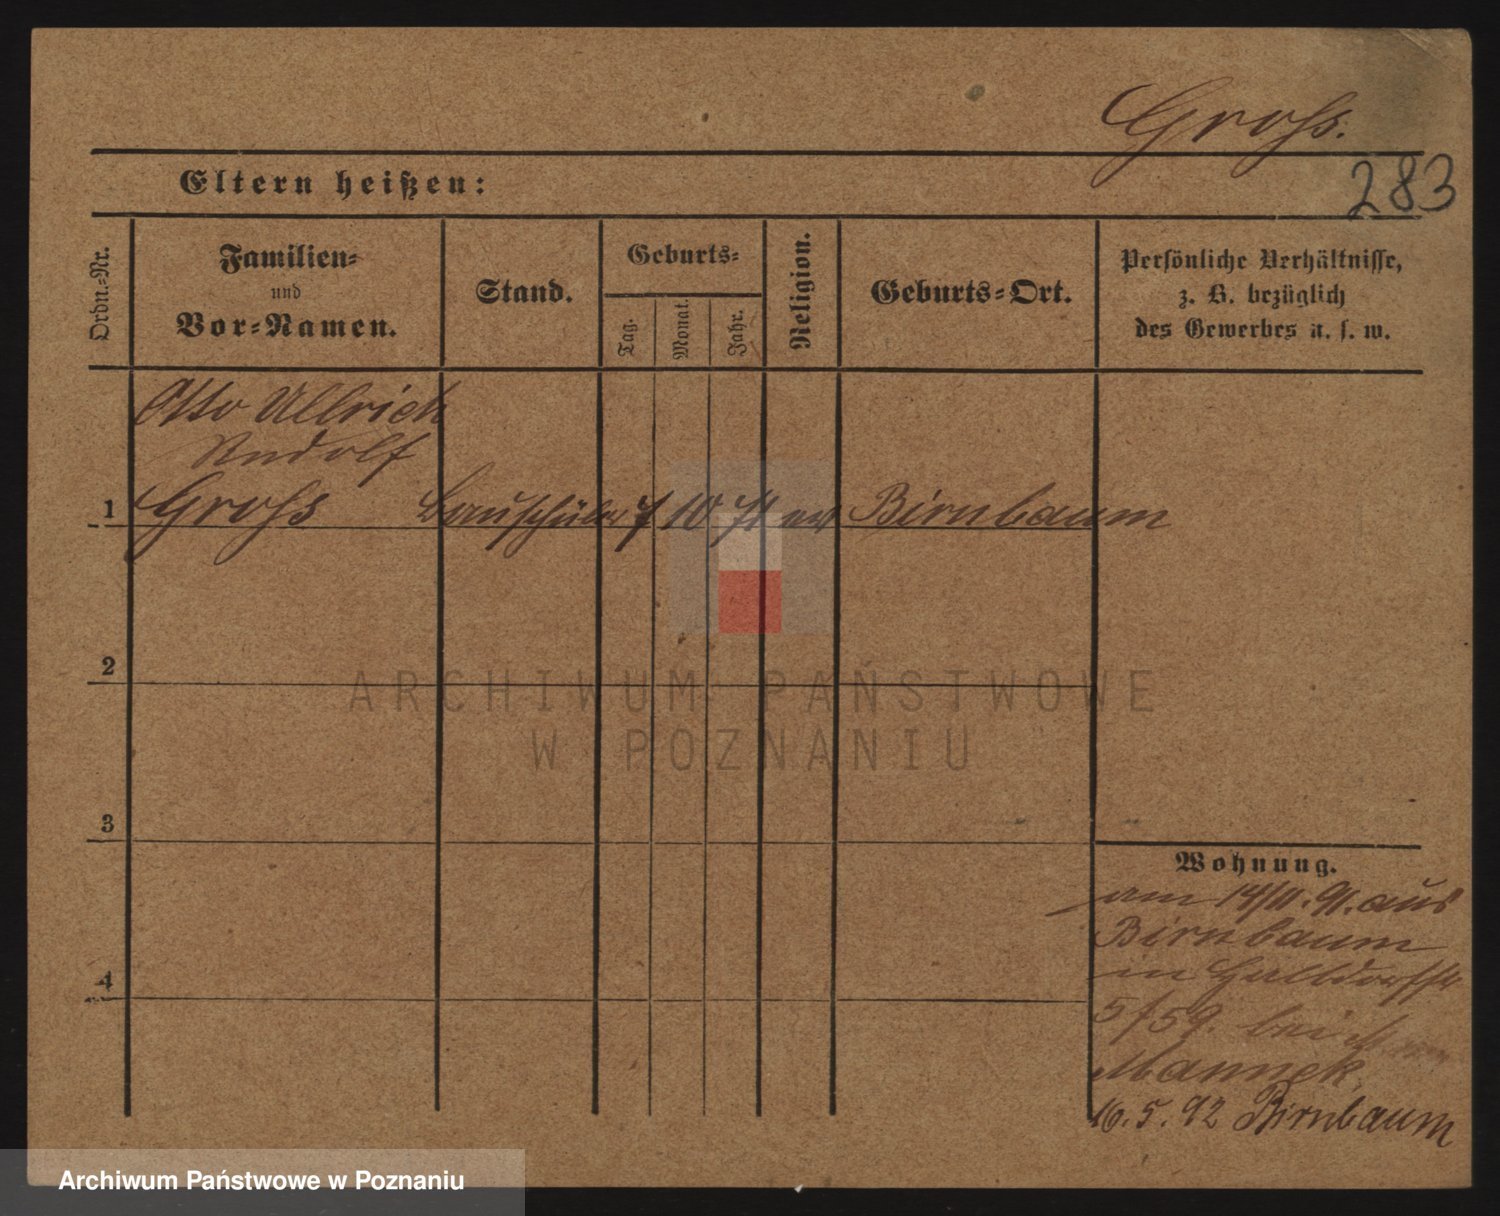 Groſs.
283
Eltern heißen:
Ordn.-Nr.
Familien-
und
Vor-Namen.
Stand.
Geburts-
Tag.
Monat.
Jahr.
Religion.
Geburts-Ort.
Persönliche Verhältnisse,
z. B. bezüglich
des Gewerbes u. s. w.
Otto Ullrich
Rudolf
1 Groſs Bauschüler 7 10 71 ev Birnbaum
2
ARCHIWUM PAŃSTWOWE
W POZNANIU
3
Wohnung.
am 14/11. 91. aus
Birnbaum
in Halbdorfstr
4
5/59. bei
Mannek.
16. 5. 92 Birnbaum
Archiwum Państwowe w Poznaniu